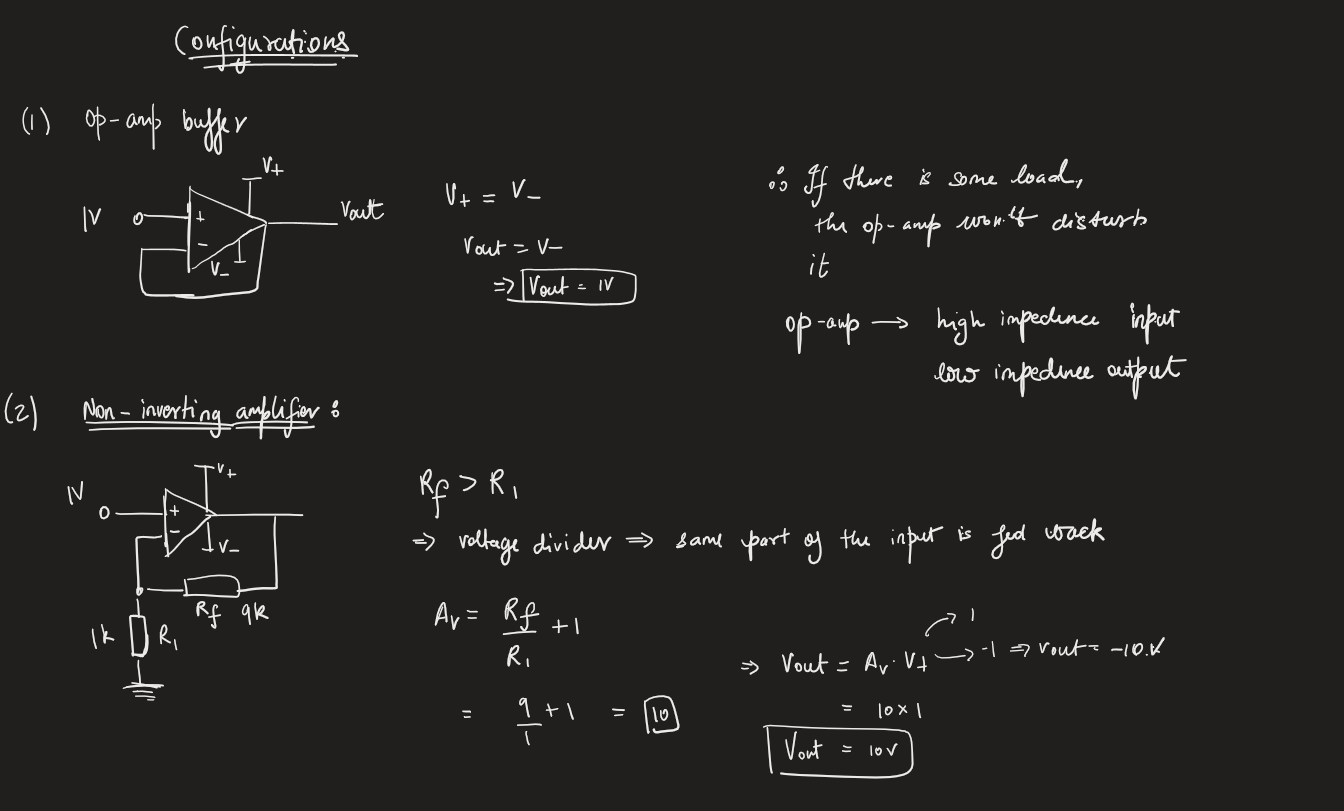 Configurations
(1) op-amp buffer
V+
1V
+
Vout
-
V-
V+ = V-
Vout = V-
⇒ Vout = 1V
∴ If there is some load,
the op-amp won't disturb
it
op-amp → high impedence input
low impedence output
(2) Non-inverting amplifier :
V+
1V
+
-
V-
Rf 9k
1k R1
Rf > R1
⇒ voltage divider ⇒ some part of the input is fed back
Av = Rf/R1 + 1
= 9/1 + 1 = 10
⇒ Vout = Av · V+ → 1
→ -1 ⇒ Vout = -10V
= 10 × 1
Vout = 10V